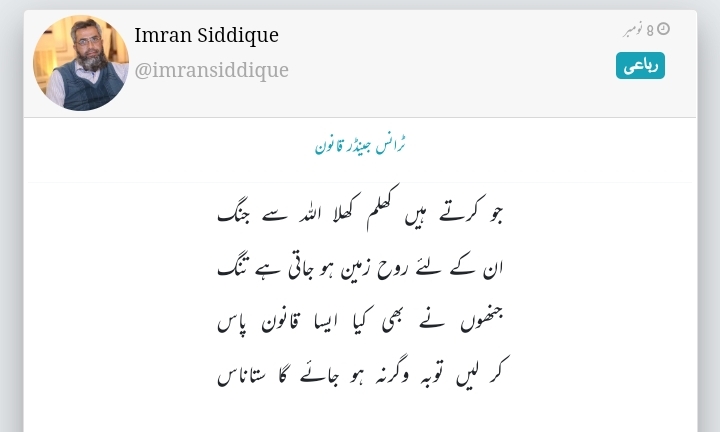 Imran Siddique
@imransiddique
8 نومبر
رباعی
ٹرانس جینڈر قانون
جو کرتے ہیں کھلم کھلا اللہ سے جنگ
ان کے لئے روح زمین ہو جاتی ہے تنگ
جنھوں نے بھی کیا ایسا قانون پاس
کر لیں توبہ وگرنہ ہو جائے گا ستاناس